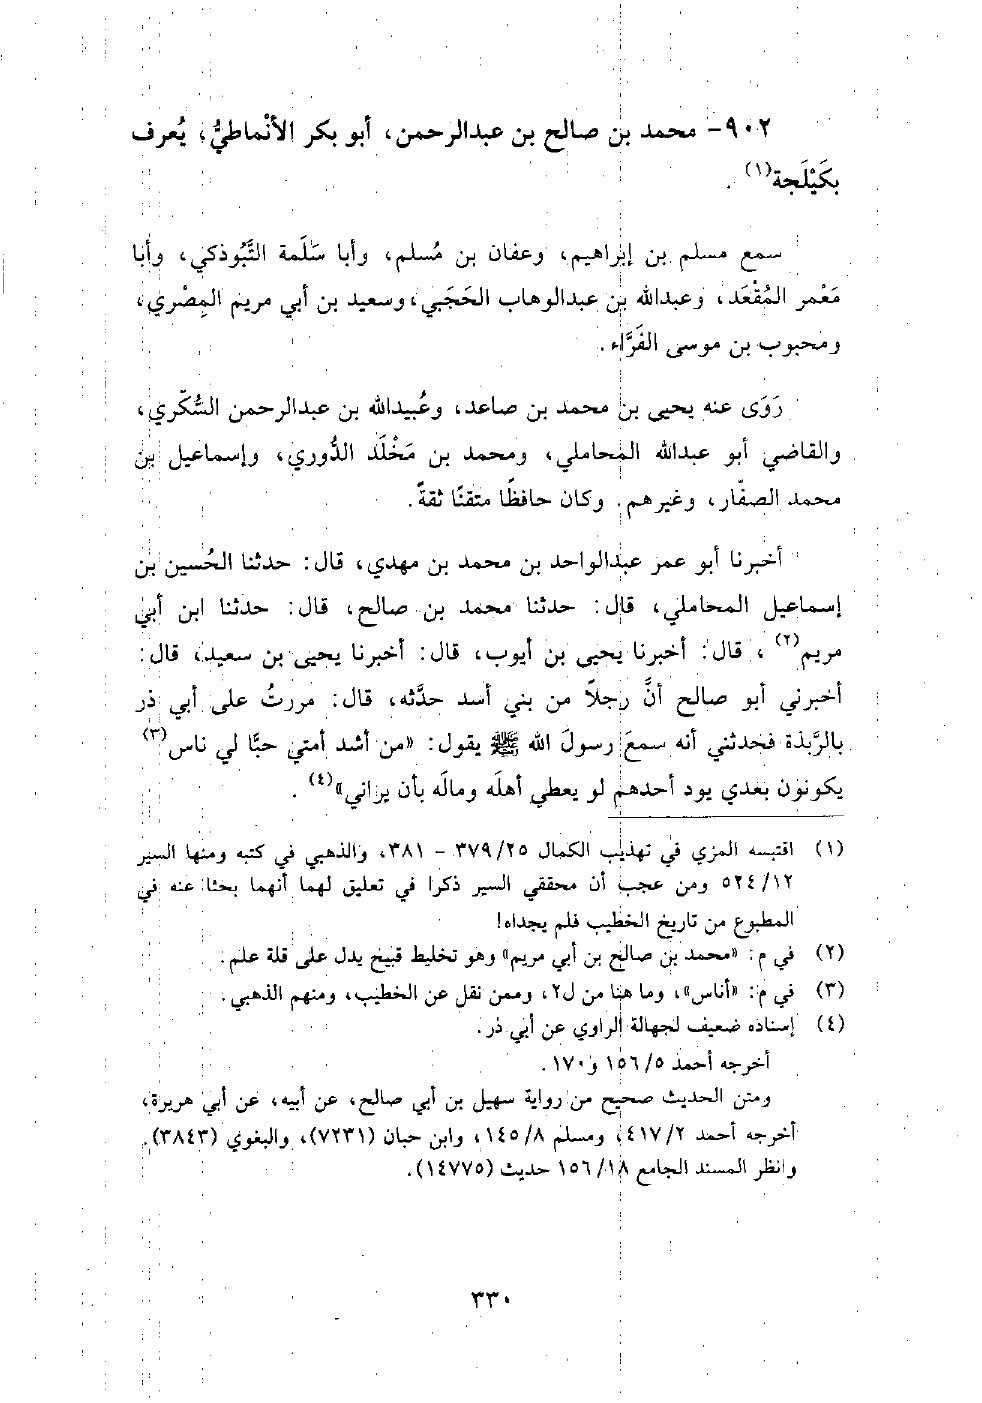 ٩٠٢- محمد بن صالح بن عبدالرحمن، أبو بكر الأنْماطيُّ، يُعرف
بكَيْلَجة(١) .
سمع مسلم بن إبراهيم، وعفان بن مُسلم، وأبا سَلَمة التَّبُوذكي، وأبا
مَعْمر المُقْعَد، وعبدالله بن عبدالوهاب الحَجَبي، وسعيد بن أبي مريم المِصْري،
ومحبوب بن موسى الفَرَّاء.
رَوَى عنه يحيى بن محمد بن صاعد، وعُبيدالله بن عبدالرحمن السُّكّري،
والقاضي أبو عبدالله المحاملي، ومحمد بن مَخْلَد الدُّوري، وإسماعيل بن
محمد الصفّار، وغيرهم. وكان حافظًا متقنًا ثقةً.
أخبرنا أبو عمر عبدالواحد بن محمد بن مهدي، قال: حدثنا الحُسين بن
إسماعيل المحاملي، قال: حدثنا محمد بن صالح، قال: حدثنا ابن أبي
مريم(٢) ، قال: أخبرنا يحيى بن أيوب، قال: أخبرنا يحيى بن سعيد، قال:
أخبرني أبو صالح أنَّ رجلاً من بني أسد حدَّثه، قال: مررتُ على أبي ذر
بالرَّبذة فحدثني أنه سمعَ رسولَ الله ﷺ يقول: «من أشد أمتي حبًّا لي ناس(٣)
يكونون بعدي يود أحدهم لو يعطي أهلَه ومالَه بأن يراني»(٤) .
(١) اقتبسه المزي في تهذيب الكمال ٢٥/ ٣٧٩ - ٣٨١، والذهبي في كتبه ومنها السير
١٢/ ٥٢٤ ومن عجب أن محققي السير ذكرا في تعليق لهما أنهما بحثا عنه في
المطبوع من تاريخ الخطيب فلم يجداه!
(٢) في م: «محمد بن صالح بن أبي مريم» وهو تخليط قبيح يدل على قلة علم.
(٣) في م: «أناس»، وما هنا من ل٢، وممن نقل عن الخطيب، ومنهم الذهبي.
(٤) إسناده ضعيف لجهالة الراوي عن أبي ذر.
أخرجه أحمد ٥/ ١٥٦ و١٧٠.
ومتن الحديث صحيح من رواية سهيل بن أبي صالح، عن أبيه، عن أبي هريرة،
أخرجه أحمد ٢/ ٤١٧، ومسلم ٨/ ١٤٥، وابن حبان (٧٢٣١)، والبغوي (٣٨٤٣).
وانظر المسند الجامع ١٨/ ١٥٦ حديث (١٤٧٧٥).
٣٣٠